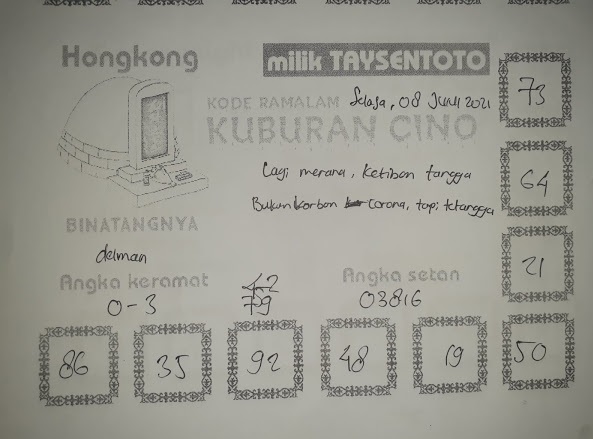 Hongkong
milik TAYSENTOTO
73
KODE RAMALAM Selasa, 08 Juni 2021
KUBURAN CINO
Lagi merana, ketiban tangga
64
Bukan korban corona, tapi tetangga
BINATANGNYA
delman
21
Angka keramat
42
Angka setan
0-3
03816
86
35
92
48
19
50